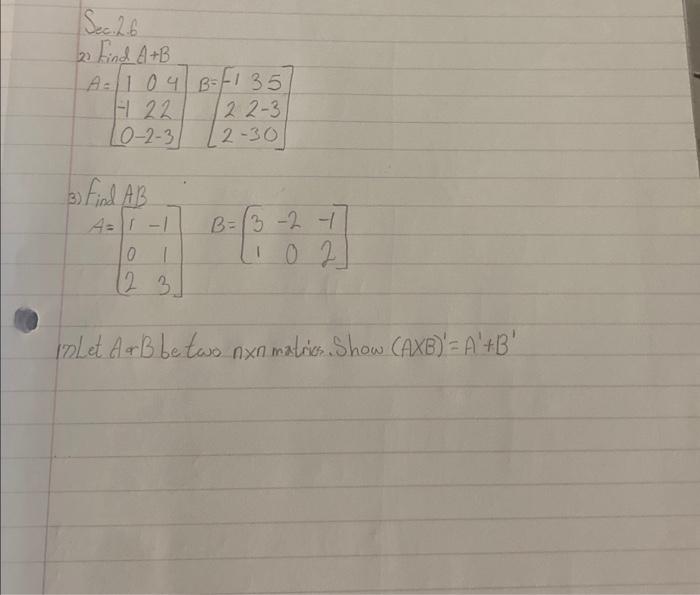 Sec. 2.6
2) Find A+B
A = [1 0 4 B = [-1 3 5
-1 2 2 2 2 -3
0 -2 -3] 2 -3 0]
3) Find AB
A = [1 -1 B = [3 -2 -1
0 1 1 0 2]
2 3]
17) Let A & B be two nxn matrices. Show (AXB)' = A' + B'